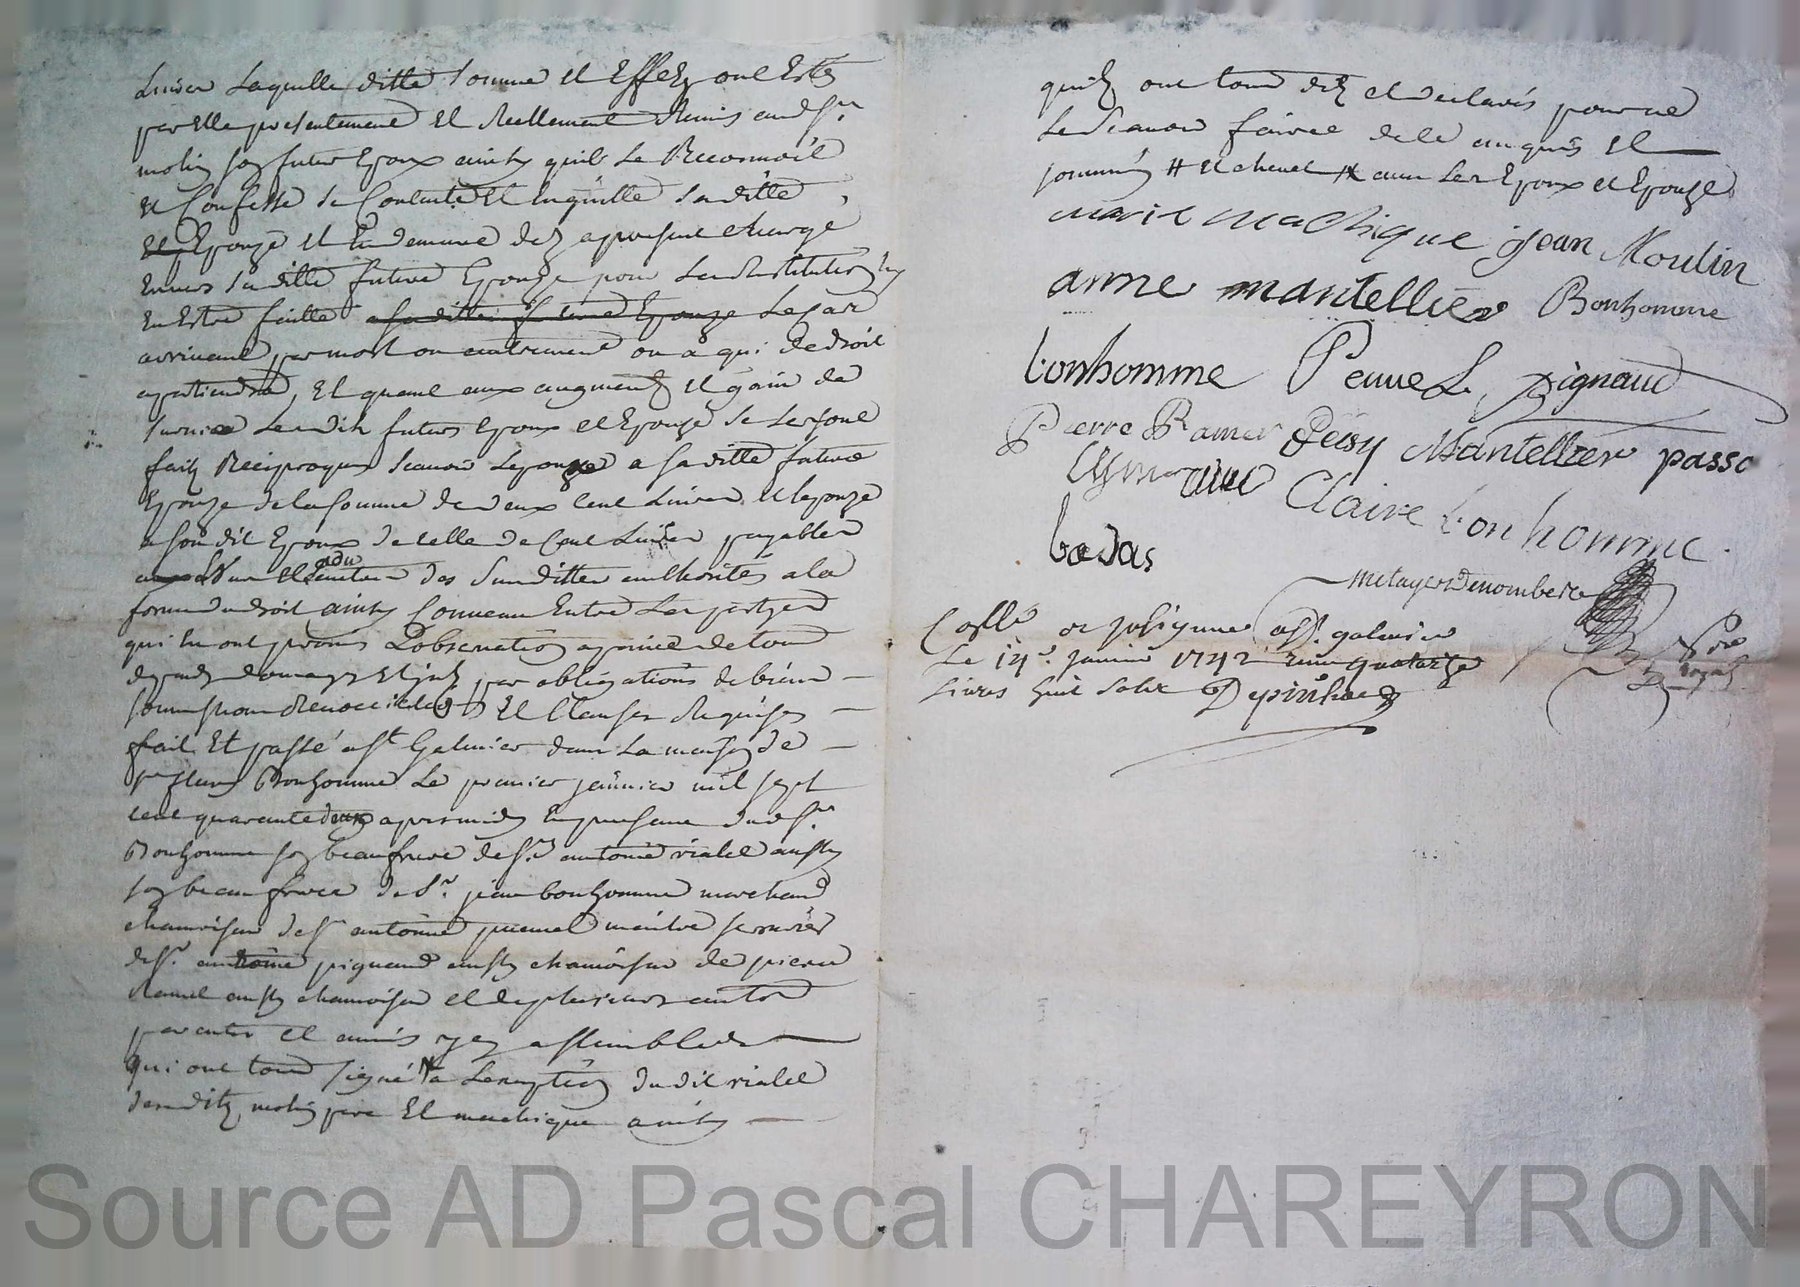 Livres Laquelle ditte somme et Effets ont Estés
par Elle presentement et Reellement Remis aud Sr.
molin son futur Epoux ainsy quil Le Reconnoit
et Confesse sen Contante Et En quitte sa ditte
Epouze Et demeure des apresent charge
Envers sa ditte future Epouze pour La Restitution
En Estre faitte a sa ditte future Epouze Le cas
arrivant par mort ou autrement ou a qui de droit
apartiendra, Et quant aux augment et gain de
survie Lesdits futurs Epoux et Epouze se Les sont
faits Reciproques scavoir Lepoux a sa ditte future
Epouze de la somme de deux cent Livres Et lepouze
a son dit Epoux de celle de Cent Livres payables
des Susdittes authorités a la
forme du droit ainsy Convenu Entre Les parties
qui En ont promis Lobservation a peine de tous
depends domages Et par obligations de biens
soumissions Renonciations Et Clauses Requises
fait Et passé a St Galmier dans La maison de
Sr Bonhomme Le premier janvier mil sept
cent quarante deux apres midy En presence dud Sr.
Bonhomme son beaufrere de Sr. antoine vialet aussy
son beau frere de Sr. jean bonhomme marchand
chamoiseur de Sr antoine maitre serrurier
de Sr. antoine pignaud aussy chamoiseur de pierre
Ramel aussy chamoiseur et de plusieurs autres
parents et amis assemblés
qui ont tous signé a Lexception dudit vialet
desdits molin pere Et machique
quils ont tous dit et declarés pour ne
Le Scavoir faire de ce enquis et
sommés # et # avec Les Epoux et Epouze
marie machique jean Moulin
anne mantellier Bonhomme
bonhomme Peuvel pignaud
Pierre Ramel Mantellier passe
Claire bonhomme
bedas
metayer
Collé St. galmier
Le 14e. janvier 1742 quatorze
Livres huit sols Depinhac
Source AD Pascal CHAREYRON